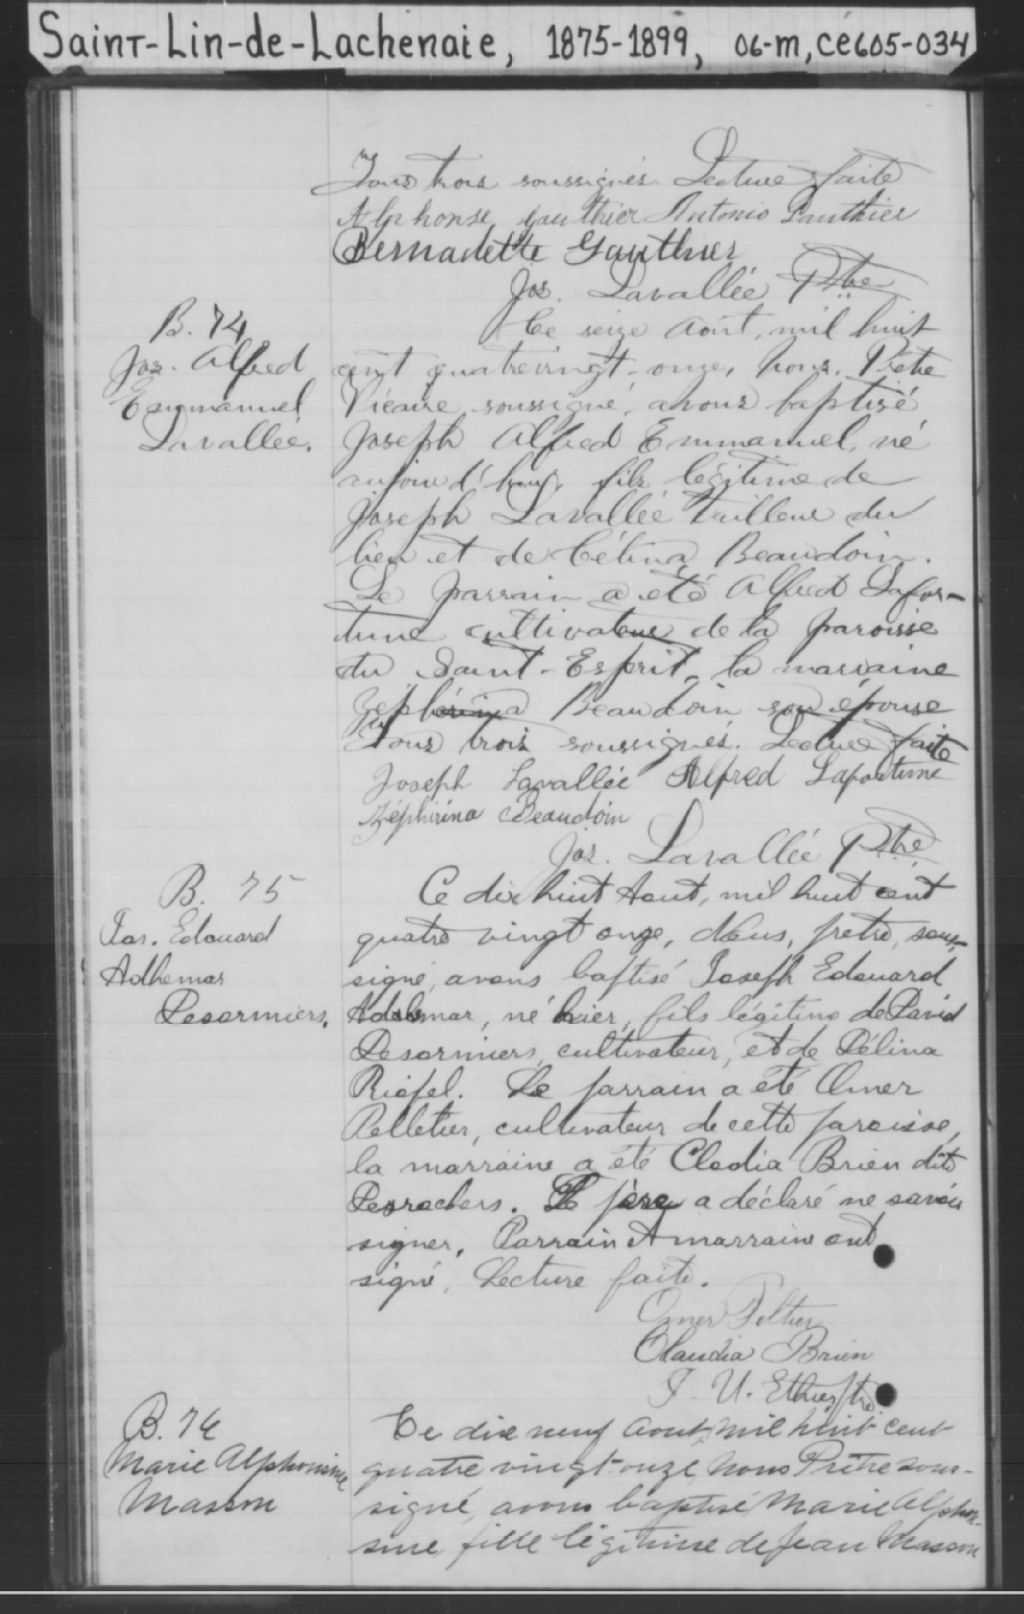 Saint-Lin-de-Lachenaie, 1875-1899, 06-m, CE605-034
Tous trois soussignés. Lecture faite
Alphonse gauthier Antonio Gauthier
Bernadette Gauthier
Jos. Lavallée Ptre
B. 74
Jos. Alfred
Emmanuel
Lavallée.
Ce seize Août, mil huit
cent quatrevingt-onze, nous, Prêtre
Vicaire soussigné, avons baptisé
Joseph Alfred Emmanuel, né
aujourd'hui, fils légitime de
Joseph Lavallée tailleur du
lieu et de Célina Beaudoin.
Le parrain a été Alfred Lafor-
tune cultivateur de la paroisse
du Saint-Esprit, la marraine
Beaudoin son épouse
Tous trois soussignés. Lecture faite
Joseph Lavallée Alfred Lafortune
Zéphirina Beaudoin
Jos. Lavallée Ptre
B. 75
Jos. Edouard
Adhemar
Desormiers.
Ce dix huit Aout, mil huit cent
quatre vingt onze, Nous, prêtre, sous-
signé, avons baptisé Joseph Edouard
Adhemar, né hier, fils légitime de David
Desormiers, cultivateur, et de Délina
Riopel. Le parrain a été Omer
Pelletier, cultivateur de cette paroisse,
la marraine a été Clodia Brien dit
Desrochers. Le père a déclaré ne savoir
signer, Parrain et marraine ont
signé, Lecture faite.
Omer Peltier
Claudia Brien
J. U. Ethier Ptre
B. 76
Marie Alphonsine
Masson
Ce dix neuf Aout mil huit cent
quatre vingt-onze Nous Prêtre sous-
signé, avons baptisé Marie Alphon-
sine, fille légitime de Jean Masson